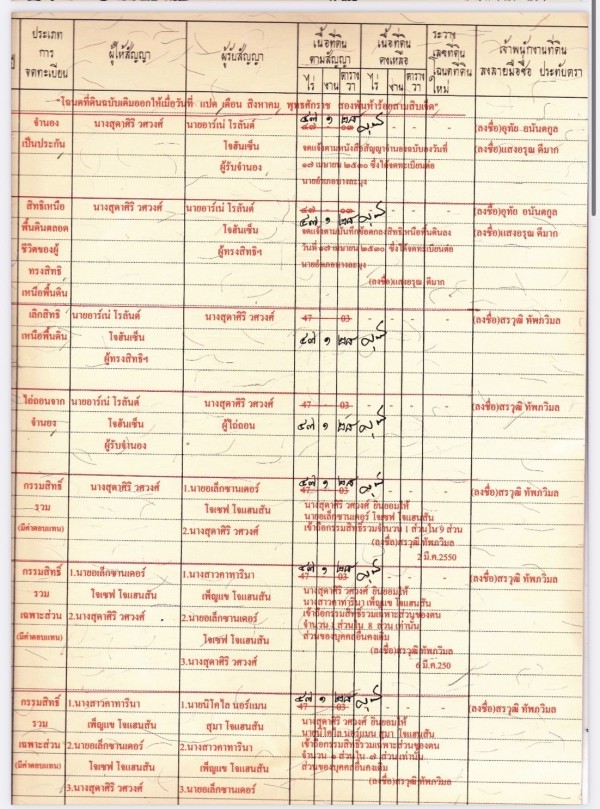 ประเภท
การ
จดทะเบียน
ผู้ให้สัญญา
ผู้รับสัญญา
เนื้อที่ดิน
ตามสัญญา
ไร่ งาน ตารางวา
เนื้อที่ดิน
คงเหลือ
ไร่ งาน ตารางวา
ระวาง
เลขที่ดิน
โฉนดที่ดิน
ใหม่
เจ้าพนักงานที่ดิน
ลงลายมือชื่อ ประทับตรา
ปี
"โฉนดที่ดินฉบับเดิมออกให้เมื่อวันที่ แปด เดือน สิงหาคม พุทธศักราช สองพันห้าร้อยสามสิบเจ็ด"
จำนอง นางสุดาศิริ วศวงศ์ นายอาร์เน่ โรลันด์ ๔๗ ๑ ๒๕
เป็นประกัน โจฮันเซ็น ๔๗ - ๐๓ - - - - (ลงชื่อ)อุทัย อนันตกูล
ผู้รับจำนอง จดแจ้งตามหนังสือสัญญาจำนองฉบับลงวันที่ (ลงชื่อ)แสงอรุณ ดีมาก
๑๗ เมษายน ๒๕๓๐ ซึ่งได้จดทะเบียนต่อ
นายอำเภอบางละมุง
สิทธิเหนือ นางสุดาศิริ วศวงศ์ นายอาร์เน่ โรลันด์ ๔๗ - ๐๓ - - - - (ลงชื่อ)อุทัย อนันตกูล
พื้นดินตลอด โจฮันเซ็น ๔๗ ๑ ๒๕ (ลงชื่อ)แสงอรุณ ดีมาก
ชีวิตของผู้ ผู้ทรงสิทธิฯ จดแจ้งตามบันทึกข้อตกลงสิทธิเหนือพื้นดินลง
ทรงสิทธิ วันที่ ๑๗ เมษายน ๒๕๓๐ ซึ่งได้จดทะเบียนต่อ
เหนือพื้นดิน นายอำเภอบางละมุง
(ลงชื่อ)แสงอรุณ ดีมาก
เลิกสิทธิ นายอาร์เน่ โรลันด์ นางสุดาศิริ วศวงศ์ 47 - 03 - - - - (ลงชื่อ)สรวุฒิ ทัพภวิมล
เหนือพื้นดิน โจฮันเซ็น ๔๗ ๑ ๒๕
ผู้ทรงสิทธิฯ
ไถ่ถอนจาก นายอาร์เน่ โรลันด์ นางสุดาศิริ วศวงศ์ 47 - 03 - - - - (ลงชื่อ)สรวุฒิ ทัพภวิมล
จำนอง โจฮันเซ็น ผู้ไถ่ถอน ๔๗ ๑ ๒๕
ผู้รับจำนอง
กรรมสิทธิ์ นางสุดาศิริ วศวงศ์ 1.นายอเล็กซานเดอร์ ๔๗ ๑ ๒๕
47 - 03 - - - - (ลงชื่อ)สรวุฒิ ทัพภวิมล
รวม โจเซฟ โจแฮนสัน นางสุดาศิริ วศวงศ์ ยินยอมให้
นายอเล็กซานเดอร์ โจเซฟ โจแฮนสัน
(มีค่าตอบแทน) 2.นางสุดาศิริ วศวงศ์ เข้าถือกรรมสิทธิ์รวมจำนวน 1 ส่วนใน 9 ส่วน
(ลงชื่อ)สรวุฒิ ทัพภวิมล
2 มี.ค.2550
กรรมสิทธิ์ 1.นายอเล็กซานเดอร์ 1.นางสาวคาทารีนา ๔๗ ๑ ๒๕
47 - 03 - - - - (ลงชื่อ)สรวุฒิ ทัพภวิมล
รวม โจเซฟ โจแฮนสัน เพ็ญแข โจแฮนสัน นางสุดาศิริ วศวงศ์ ยินยอมให้
นางสาวคาทารีนา เพ็ญแข โจแฮนสัน
เฉพาะส่วน 2.นางสุดาศิริ วศวงศ์ 2.นายอเล็กซานเดอร์ เข้าถือกรรมสิทธิ์รวมเฉพาะส่วนของตน
จำนวน 1 ส่วนใน 8 ส่วน เท่านั้น
(มีค่าตอบแทน) โจเซฟ โจแฮนสัน ส่วนของบุคคลอื่นคงเดิม
(ลงชื่อ)สรวุฒิ ทัพภวิมล
3.นางสุดาศิริ วศวงศ์ 6 มี.ค.250
กรรมสิทธิ์ 1.นางสาวคาทารีนา 1.นายนิโคไล นอร์แมน ๔๗ ๑ ๒๕
47 - 03 - - - - (ลงชื่อ)สรวุฒิ ทัพภวิมล
รวม เพ็ญแข โจแฮนสัน สุมา โจแฮนสัน นางสุดาศิริ วศวงศ์ ยินยอมให้
นายนิโคไล นอร์แมน สุมา โจแฮนสัน
เฉพาะส่วน 2.นายอเล็กซานเดอร์ 2.นางสาวคาทารีนา เข้าถือกรรมสิทธิ์รวมเฉพาะส่วนของตน
จำนวน ๑ ส่วนใน ๗ ส่วน เท่านั้น
(มีค่าตอบแทน) โจเซฟ โจแฮนสัน เพ็ญแข โจแฮนสัน ส่วนของบุคคลอื่นคงเดิม
3.นางสุดาศิริ วศวงศ์ 3.นายอเล็กซานเดอร์ (ลงชื่อ)สรวุฒิ ทัพภวิมล